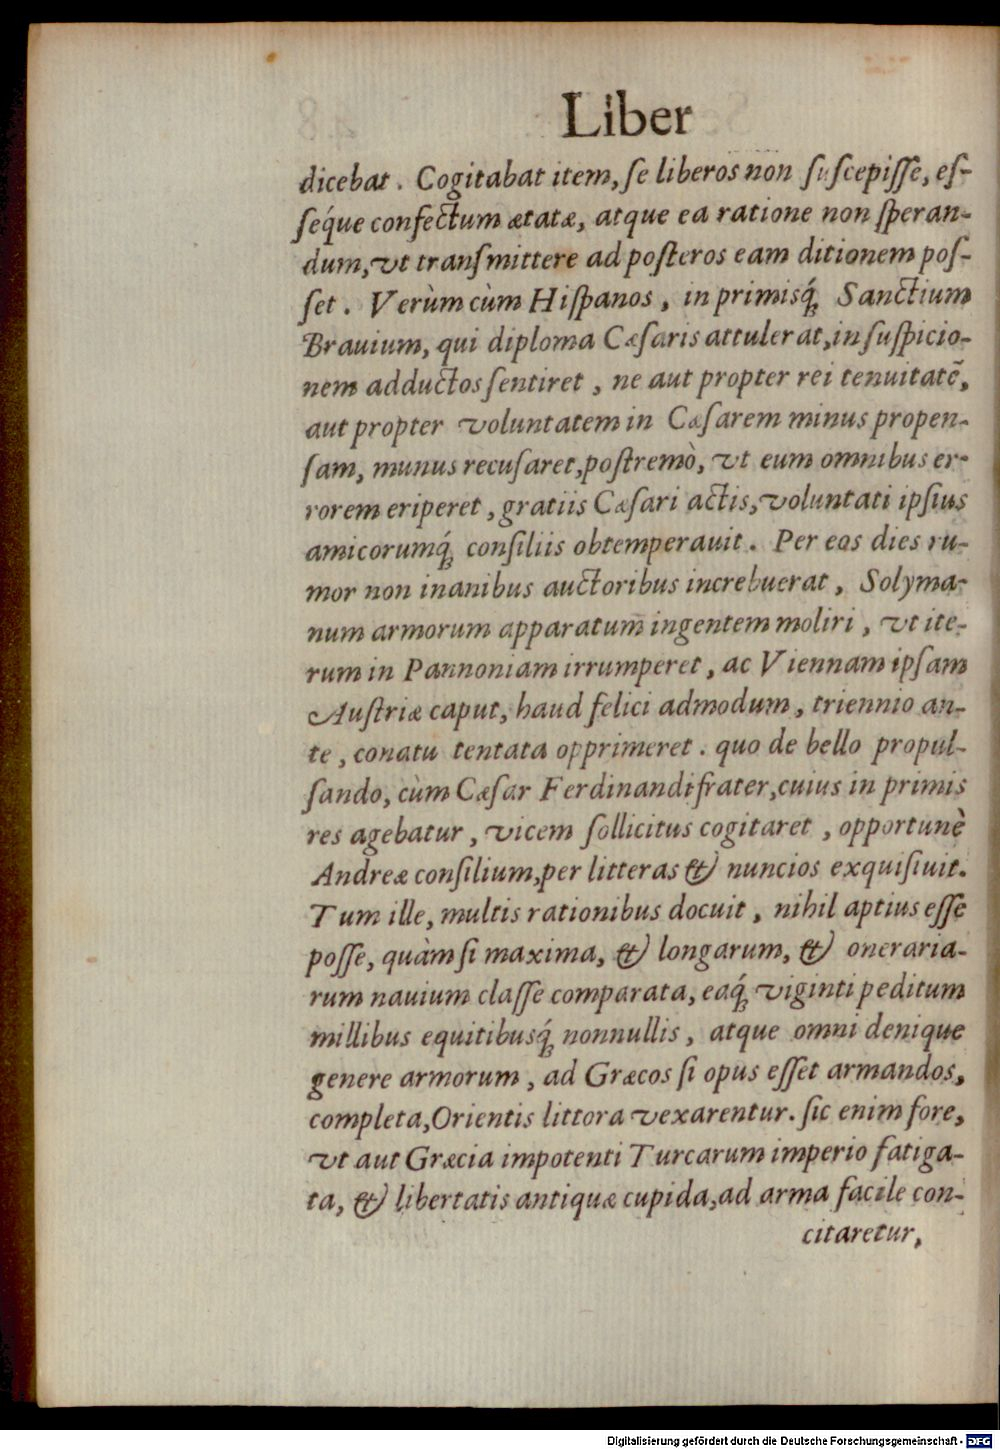 Liber
dicebat. Cogitabat item, ſe liberos non ſuſcepiſſe, eſ-
ſéque confectum ætatæ, atque ea ratione non ſperan-
dum, vt tranſmittere ad poſteros eam ditionem poſ-
ſet. Verùm cùm Hiſpanos, in primisq́; Sanctium
Brauium, qui diploma Cæſaris attulerat, in ſuſpicio-
nem adductos ſentiret, ne aut propter rei tenuitatẽ,
aut propter voluntatem in Cæſarem minus propen-
ſam, munus recuſaret, poſtremò, vt eum omnibus er-
rorem eriperet, gratiis Cæſari actis, voluntati ipſius
amicorumq́; conſiliis obtemperauit. Per eos dies ru-
mor non inanibus auctoribus increbuerat, Solyma-
num armorum apparatum ingentem moliri, vt ite-
rum in Pannoniam irrumperet, ac Viennam ipſam
Auſtriæ caput, haud felici admodum, triennio an-
te, conatu tentata opprimeret. quo de bello propul-
ſando, cùm Cæſar Ferdinandi frater, cuius in primis
res agebatur, vicem ſollicitus cogitaret, opportunè
Andreæ conſilium, per litteras & nuncios exquiſiuit.
Tum ille, multis rationibus docuit, nihil aptius eſſe
poſſe, quàm ſi maxima, & longarum, & oneraria-
rum nauium claſſe comparata, eaq́; viginti peditum
millibus equitibusq́; nonnullis, atque omni denique
genere armorum, ad Græcos ſi opus eſſet armandos,
completa, Orientis littora vexarentur. ſic enim fore,
vt aut Græcia impotenti Turcarum imperio fatiga-
ta, & libertatis antiquæ cupida, ad arma facile con-
citaretur,
Digitalisierung gefördert durch die Deutsche Forschungsgemeinschaft - DFG